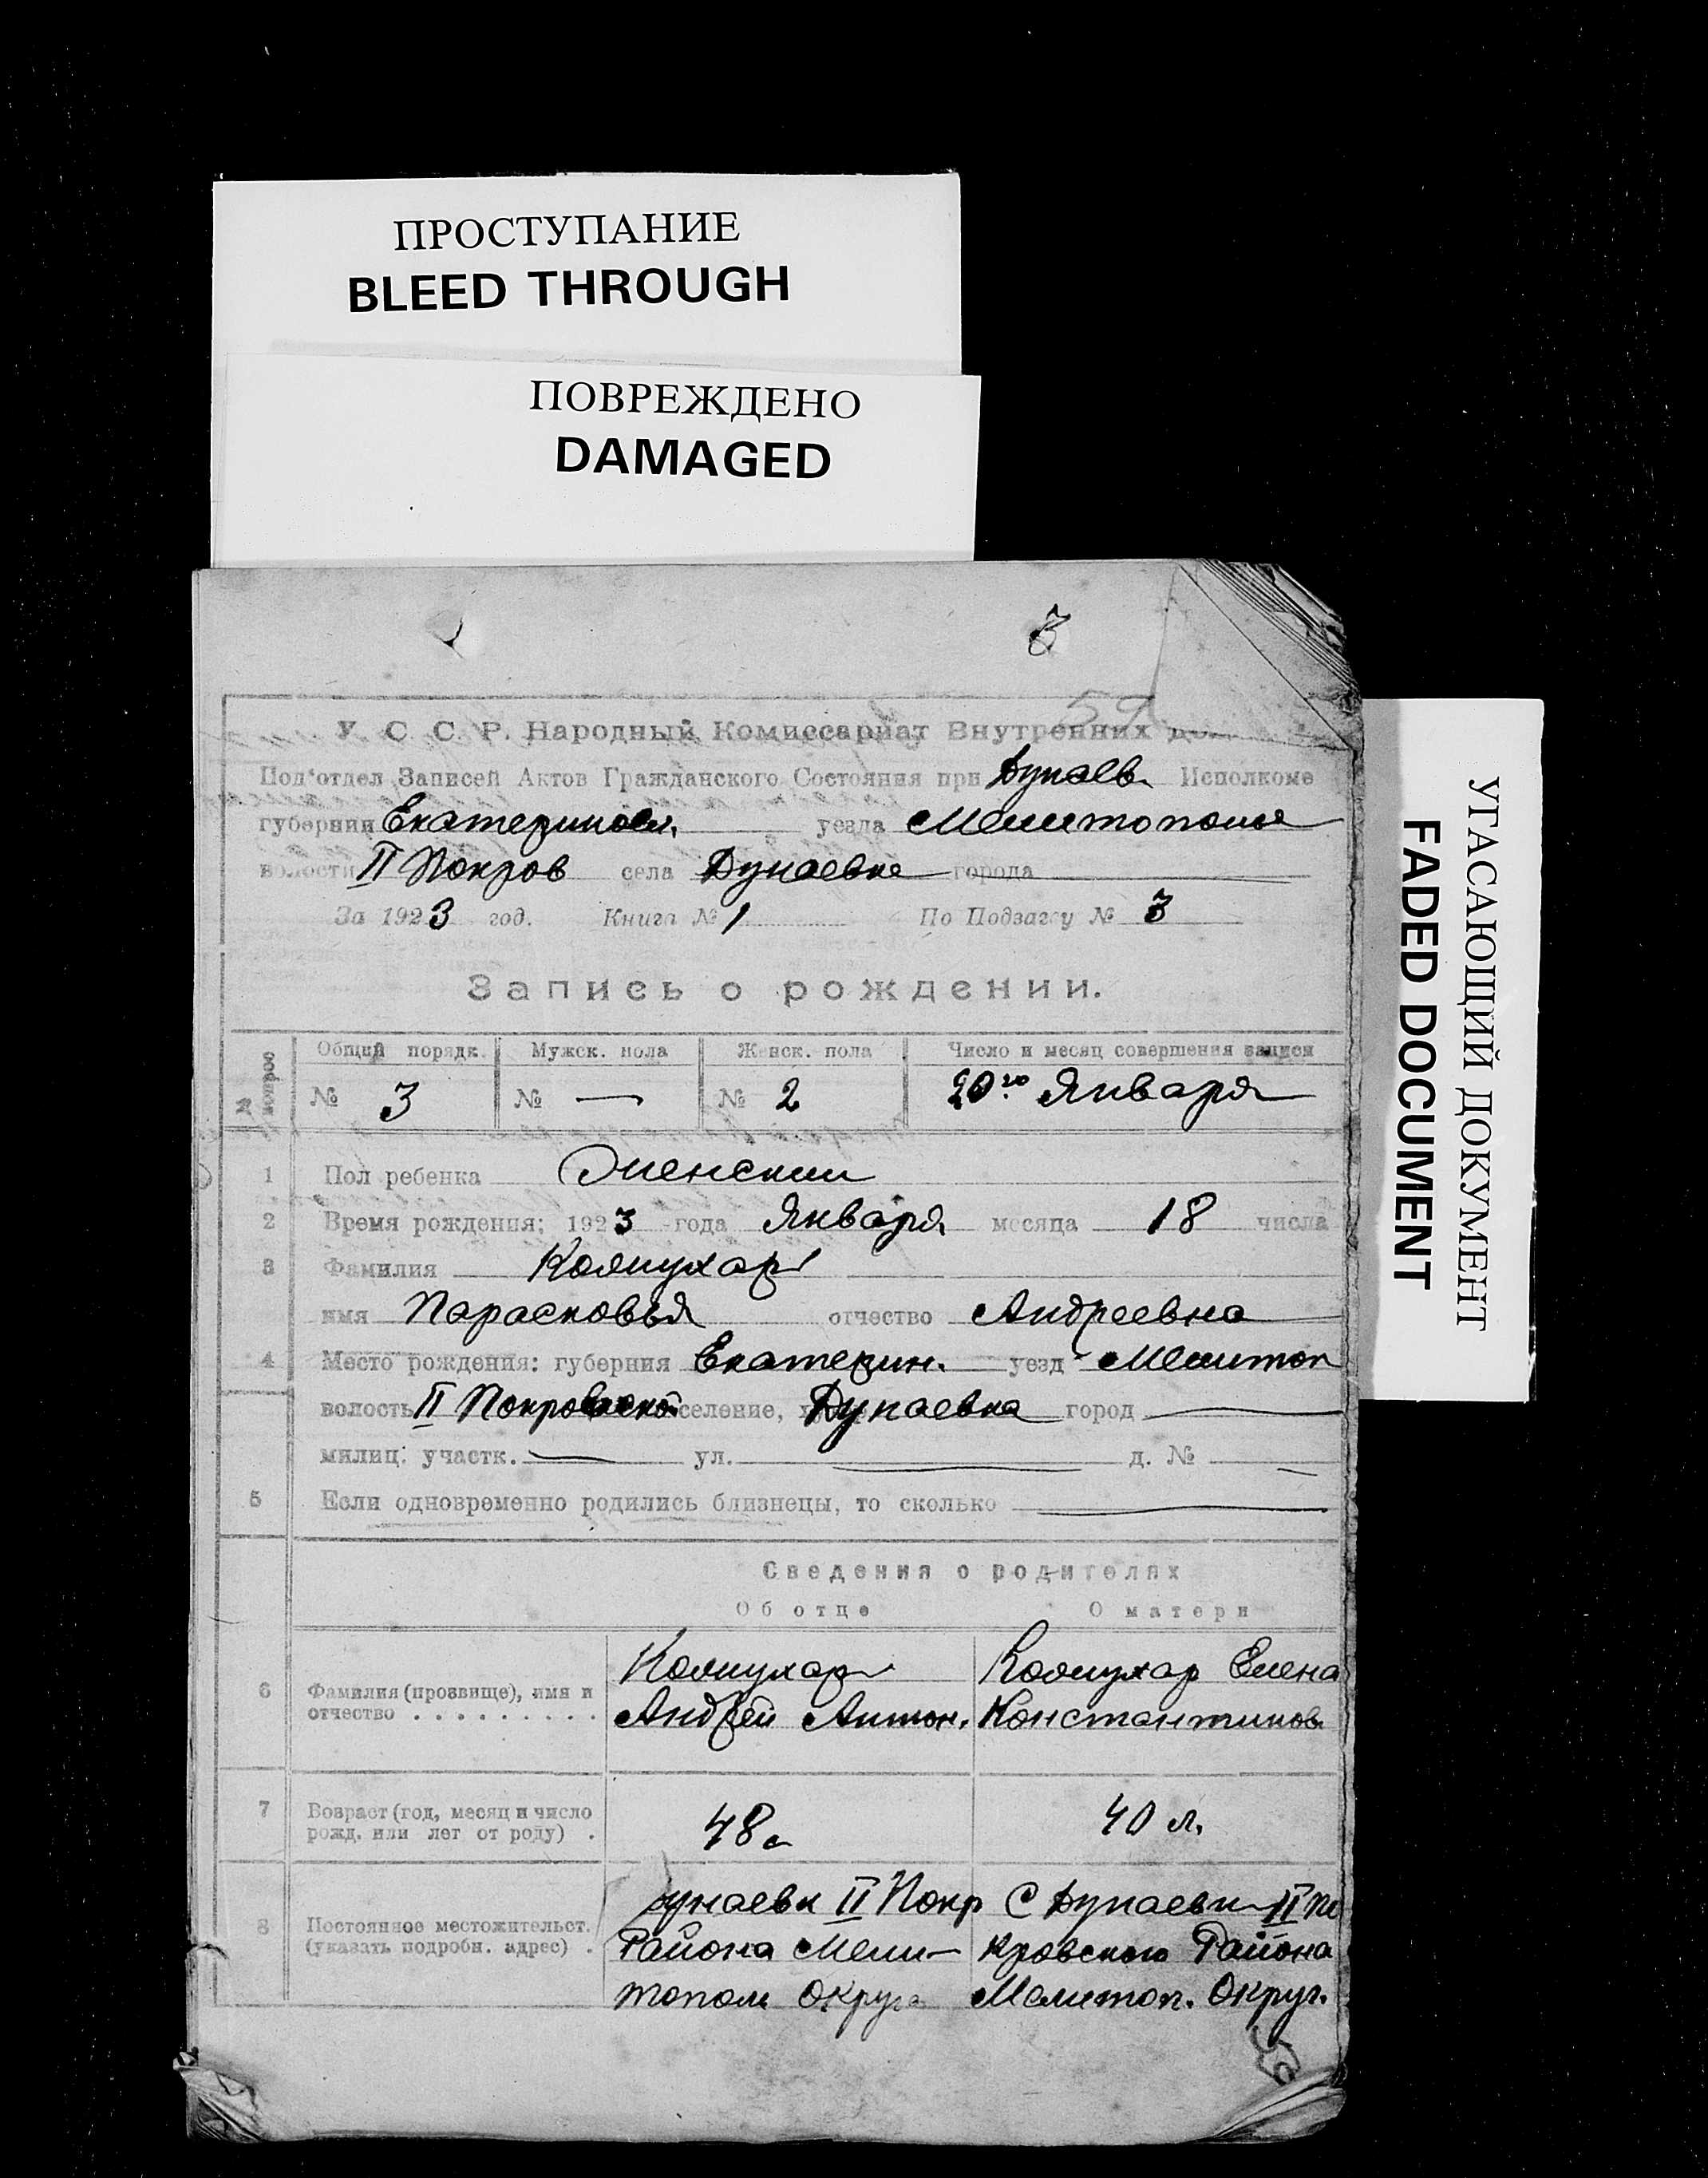 ПРОСТУПАНИЕ
BLEED THROUGH
ПОВРЕЖДЕНО
DAMAGED
УГАСАЮЩИЙ ДОКУМЕНТ
FADED DOCUMENT
3
59
У. С. С. Р. Народный Комиссариат Внутренних
Под'отдел Записей Актов Гражданского Состояния при Дунаев. Исполкоме
губернии уезда
волости II Покров села Дунаевке города
За 1923 год. Книга № 1 По Подзагсу № 3
Запись о рождении.
№ вопрос Общий порядк. Мужск. пола Женск. пола Число и месяц совершения записи
№ 3 № — № 2 20го Января
1 Пол ребенка Женский
2 Время рождения: 1923 года Января месяца 18 числа
3 Фамилия
имя Парасковья отчество Андреевна
4 Место рождения: губерния Екатерин. уезд Мелитоп
волость II Покровской селение, Дунаевка город —
милиц. участк. — ул. — д. № —
5 Если одновременно родились близнецы, то сколько —
Сведения о родителях
Об отце О матери
6 Фамилия (прозвище), имя и отчество . . . . . . . . .
Андрей Антон.
Елена
Константинов.
7 Возраст (год, месяц и число рожд. или лет от роду) .
48
40 л.
8 Постоянное местожительст. (указать подробн. адрес) .
унаевк II Покр
Района Мели-
топол Округа
С Дунаевки II По
кровского Района
Мелитоп. Округ.